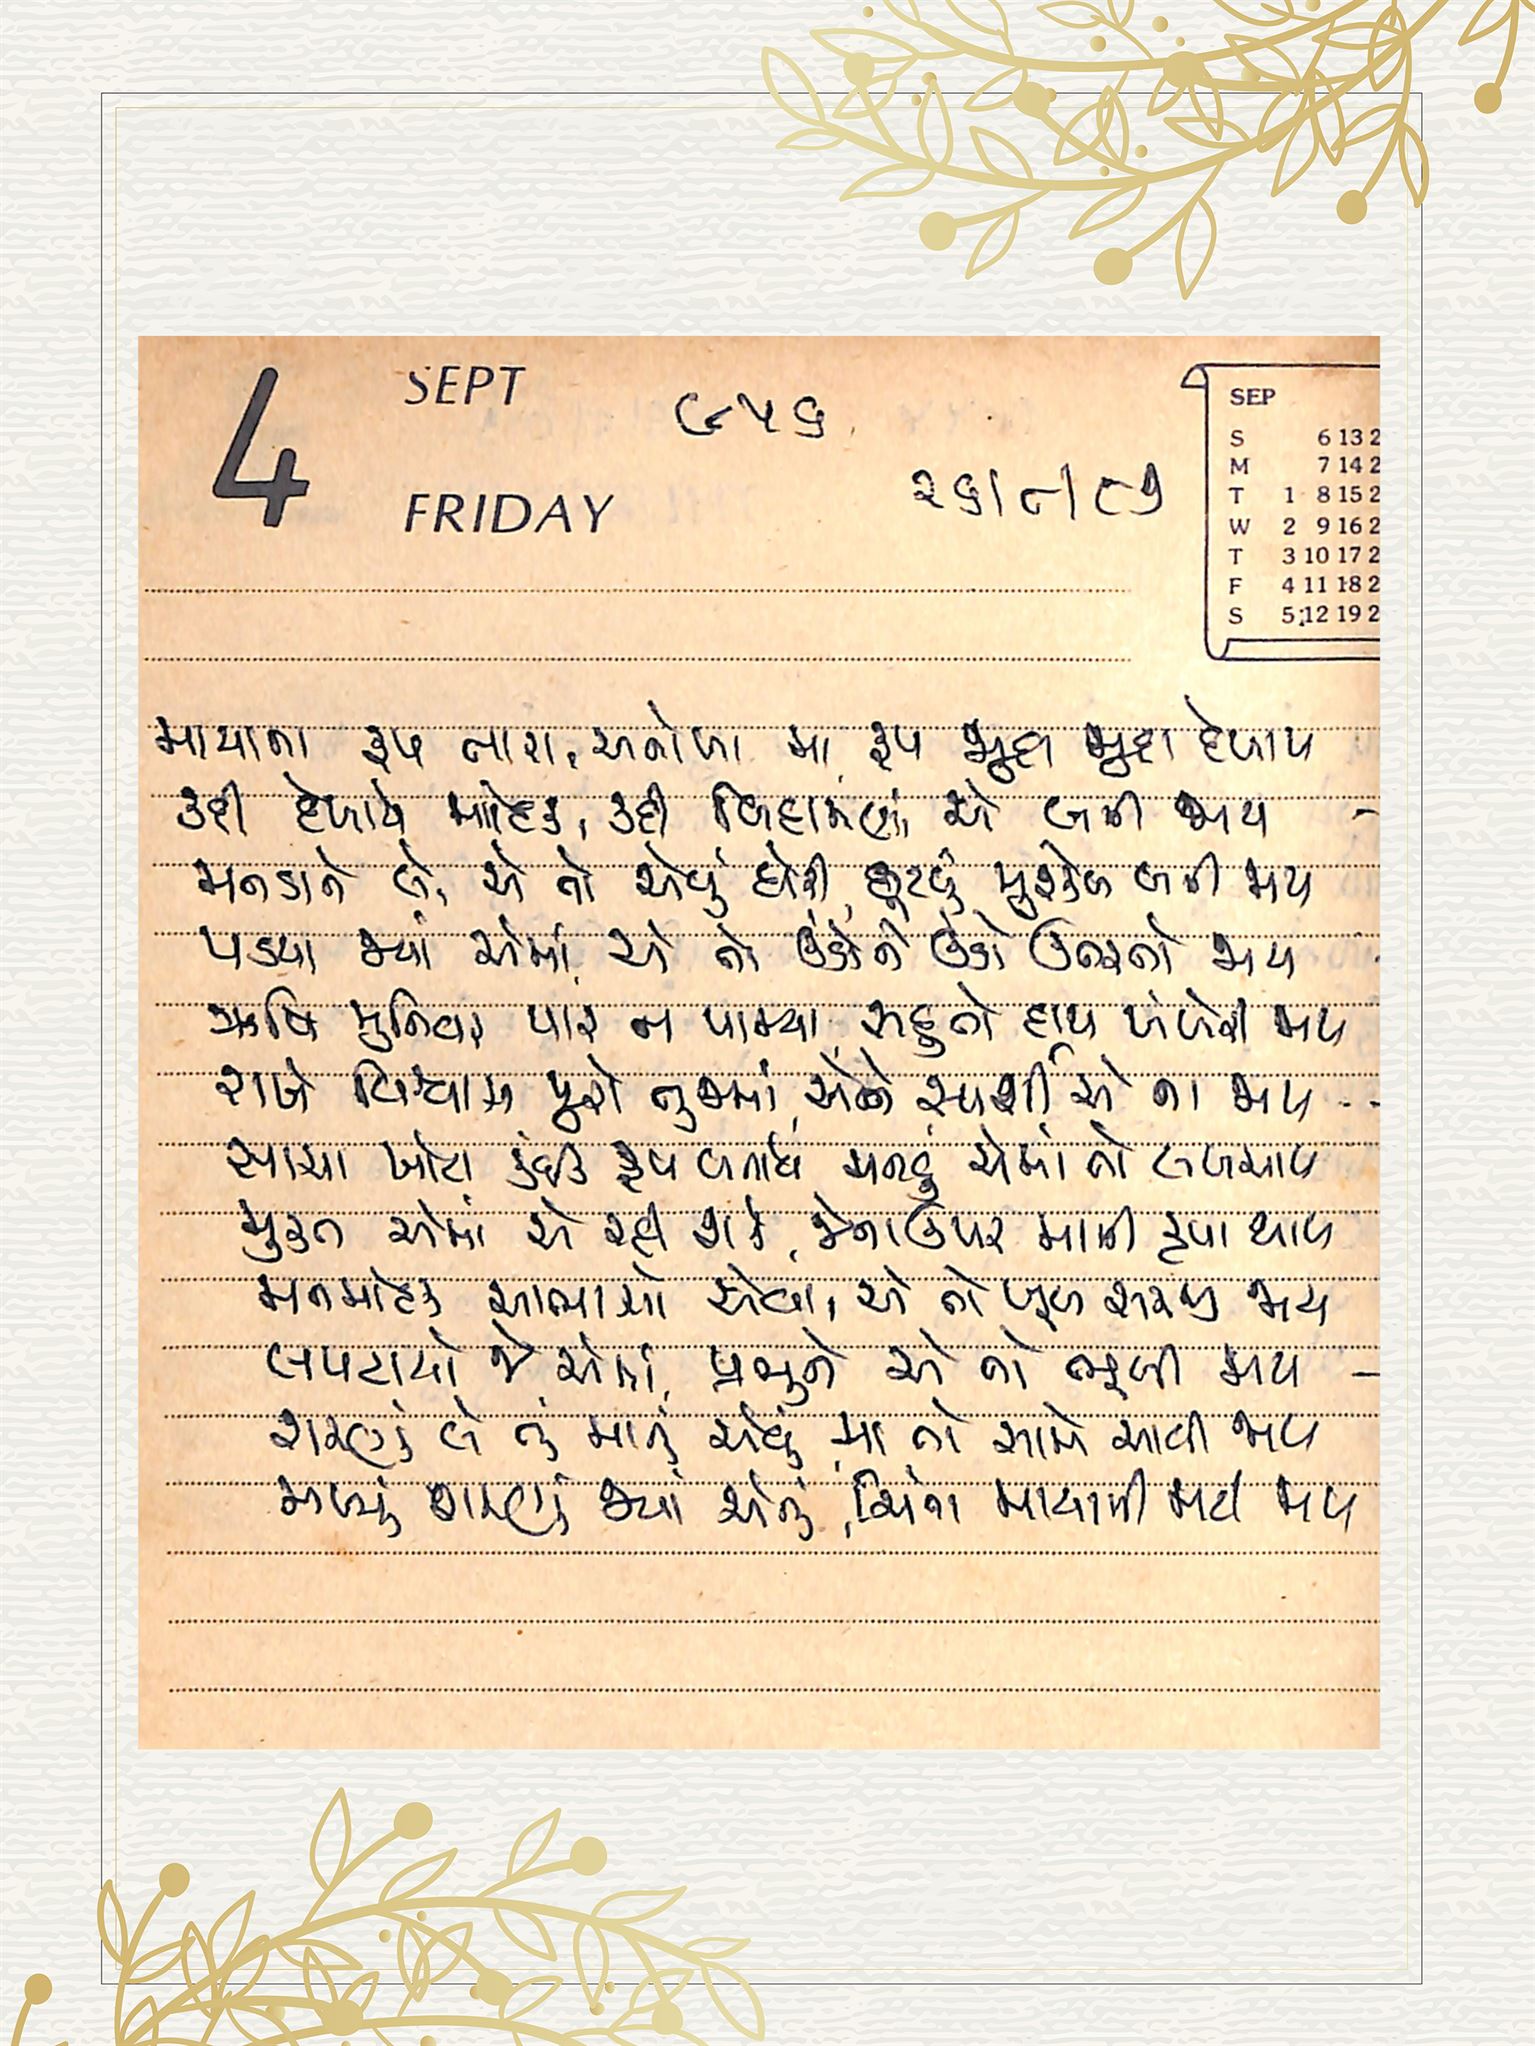 4
SEPT
FRIDAY
૯૫૬
૨૬/૮/૮૭
SEP
S 6 13 2
M 7 14 2
T 1 8 15 2
W 2 9 16 2
T 3 10 17 2
F 4 11 18 2
S 5 12 19 2
માયાના રૂપ તારા, અનોખા મા, રૂપ જુદા જુદા દેખાય
કદી દેખાયે મોહક, કદી બિહામણાં, એ બની જાય -
મનડાને લે, એ તો એવું ઘેરી, છૂટવું મુશ્કેલ બની જાય
પડયા જ્યાં એમાં, એ તો ઉંડોને ઉંડો ઉતરતો જાય
ઋષિ મુનિવર પાર ન પામ્યા, સહુતો હાથ ખંખેરી જાય
રાખે વિશ્વાસ પૂરો તુજમાં, એને સ્પર્શી એ ના જાય - -
સાચા ખોટા કંઈક રૂપ બતાવે, મનડું એમાં તો લલચાય
મુક્ત એમાં એ રહી શકે, જેના ઉપર માની કૃપા થાય
મનમોહક આભાસો એવા, એ તો ખૂબ સરજી જાય
લપટાયો જે એમાં, પ્રભુને એ તો ભૂલી જાય -
શરણું લે તું માનું એવું, મા તો સામે આવી જાય
મળ્યું શરણું જ્યાં એનું, ચિંતા માયાની મટી જાય